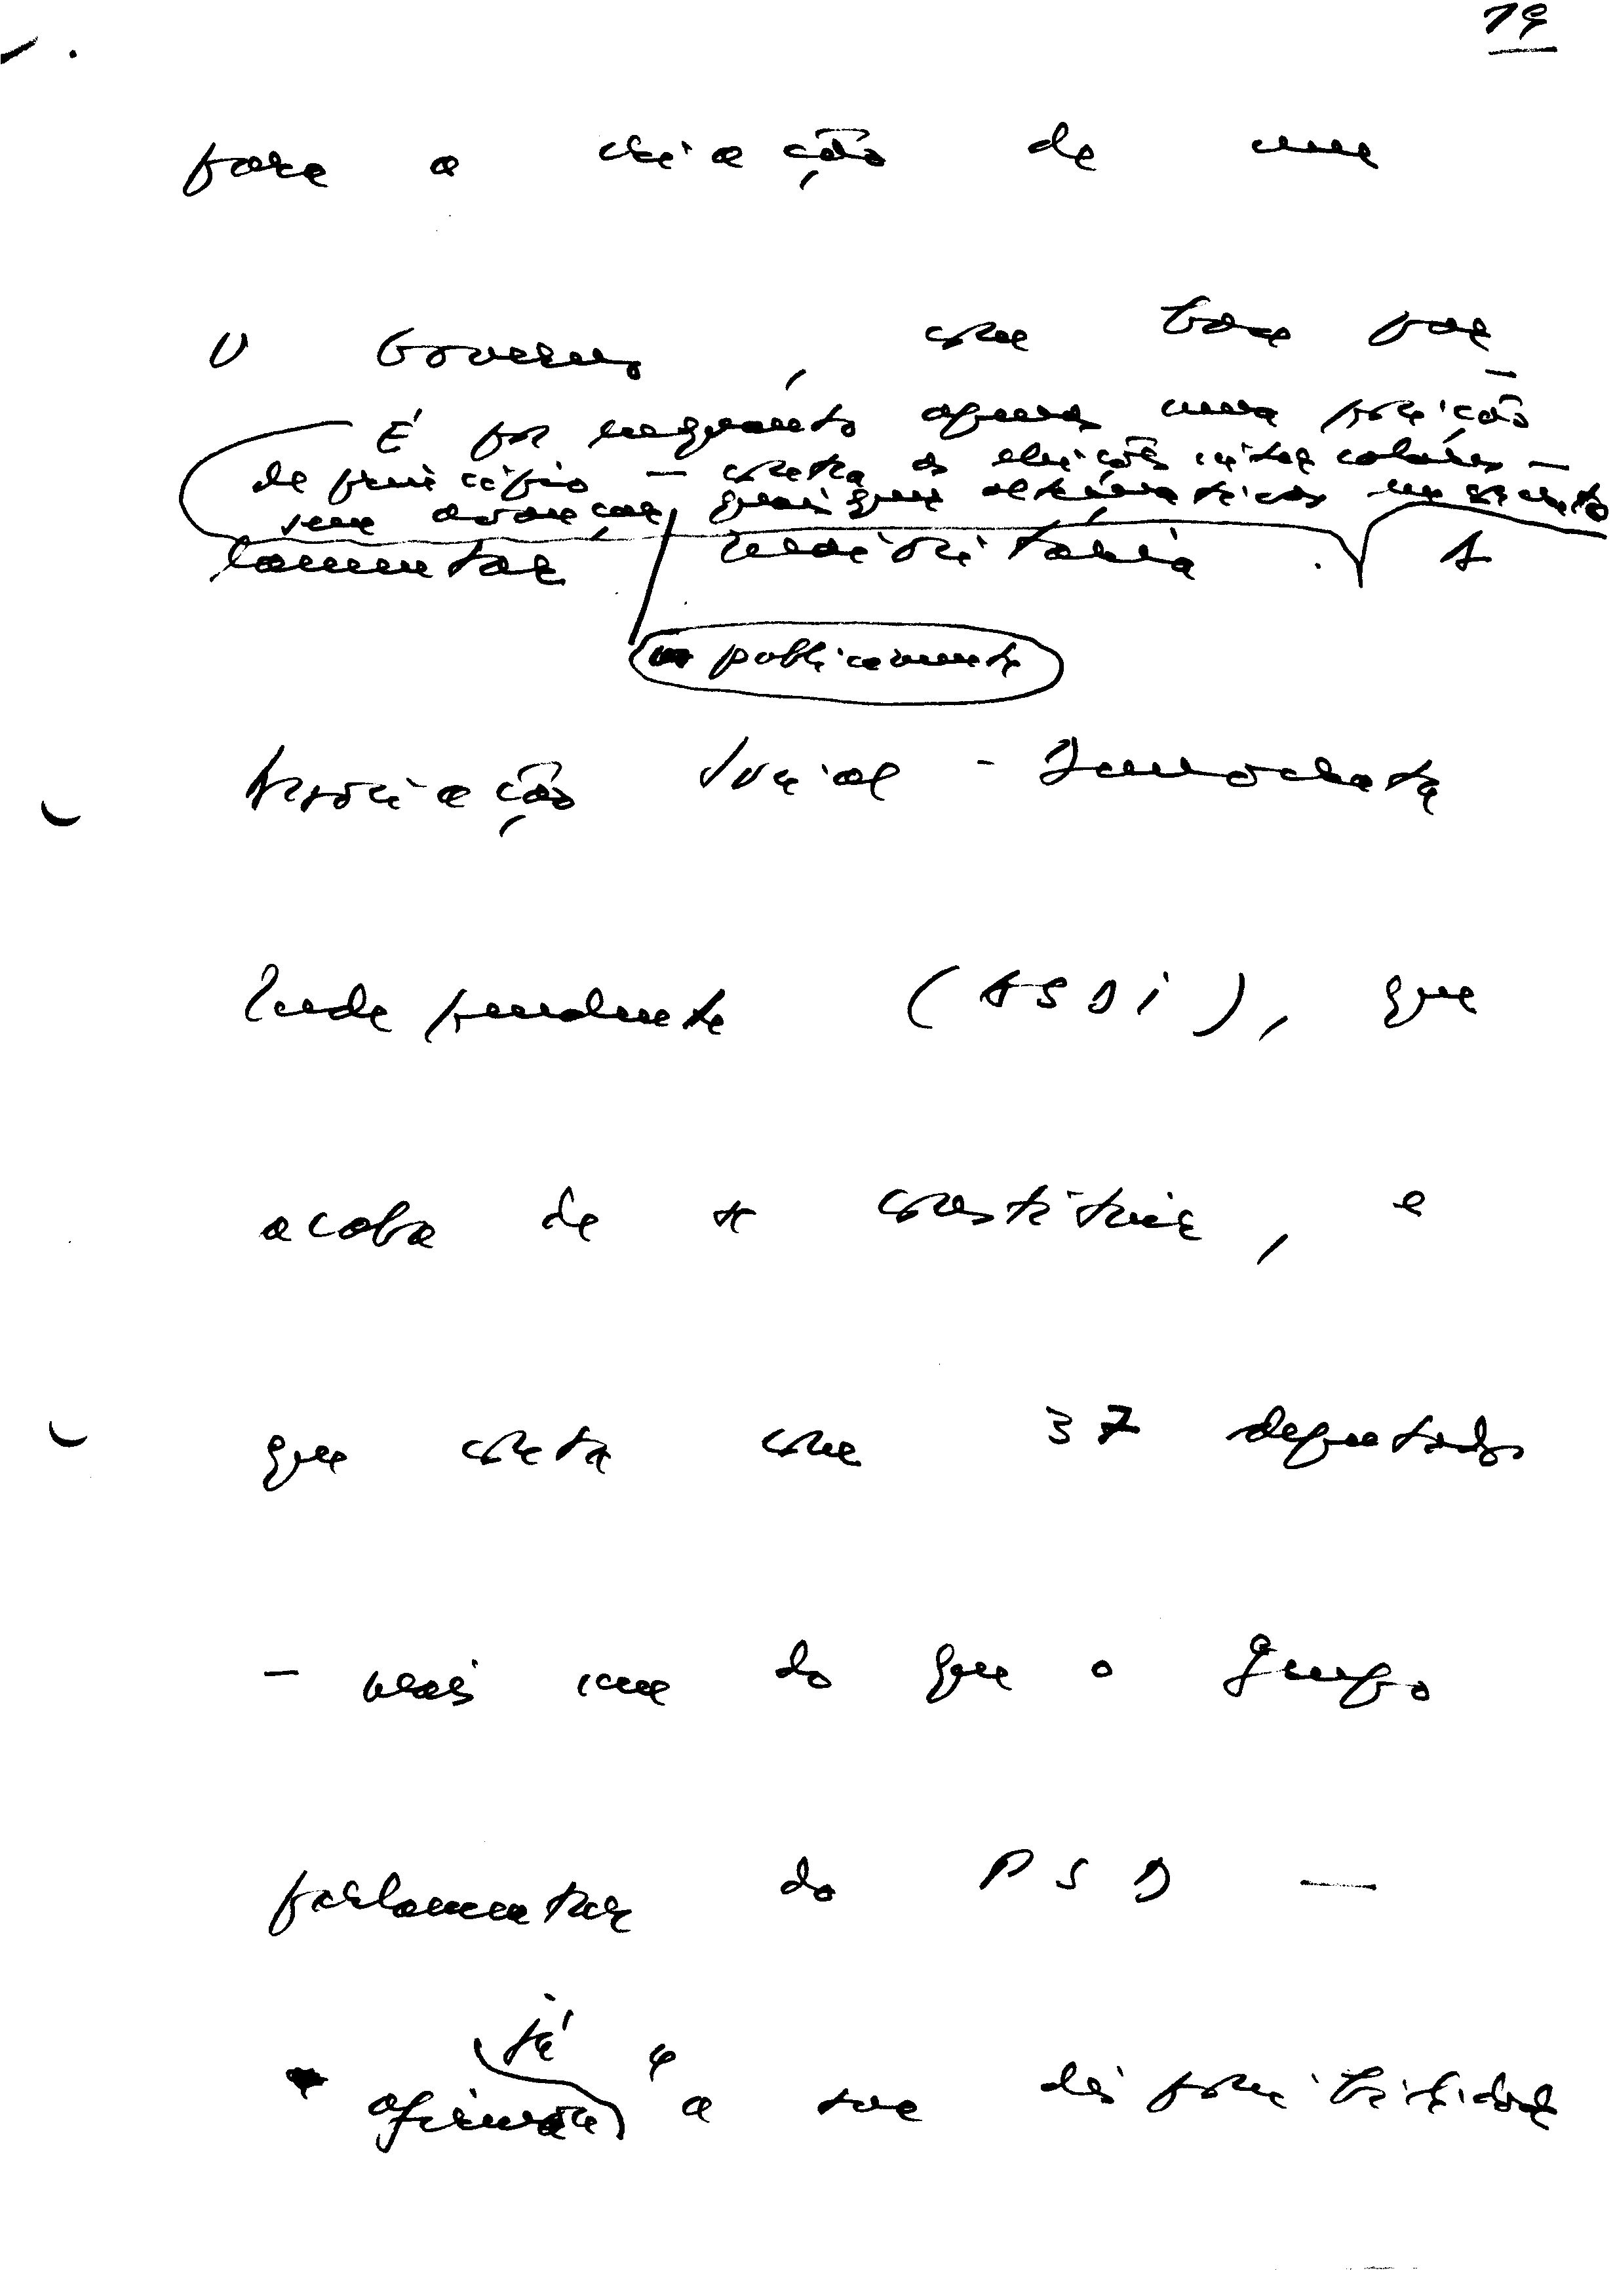 19
para a criação de um
O Governo, com base par-
É por enquanto apenas uma posição
de princípio — contra as eleições intercalares —
sem avançar quaisquer alternativas
lamentar maioritária. A
publicamente
Associação Social-Democrata
Independente (ASDI), que
acaba de constituir, e
que conta com 37 deputados
- mais um do que o Grupo
parlamentar do PSD —
já
afirmou a sua disponibilidade